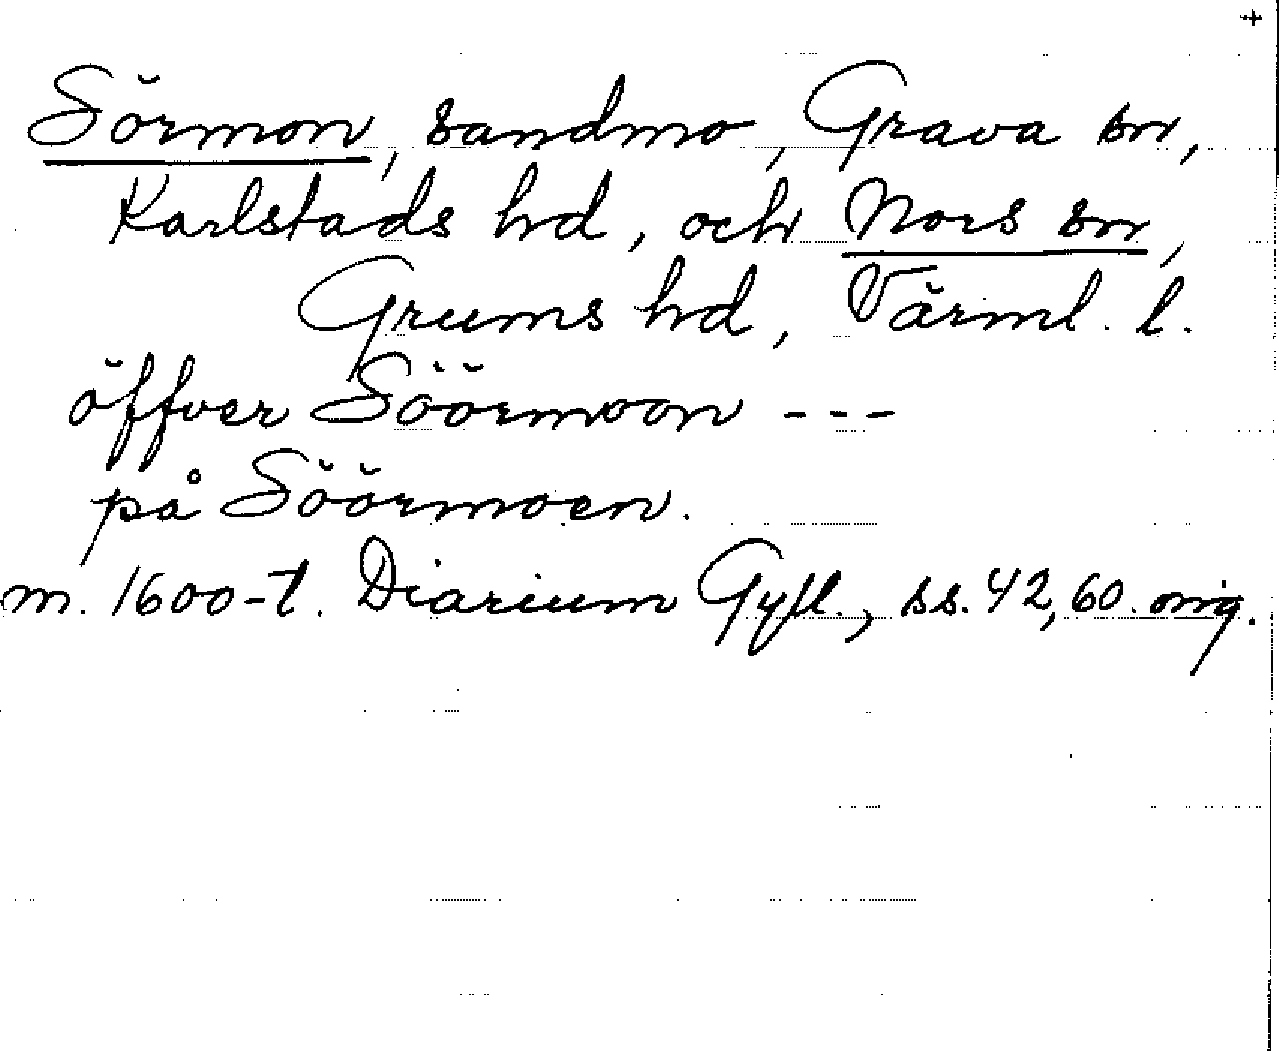 +
Sörmon, sandmo, Grava sn,
Karlstads hd, och Nors sn,
Grums hd, Värml. l.
öffver Söörmoon ---
på Söörmoen.
m. 1600-t. Diarium Gyll., ss. 42, 60. orig.